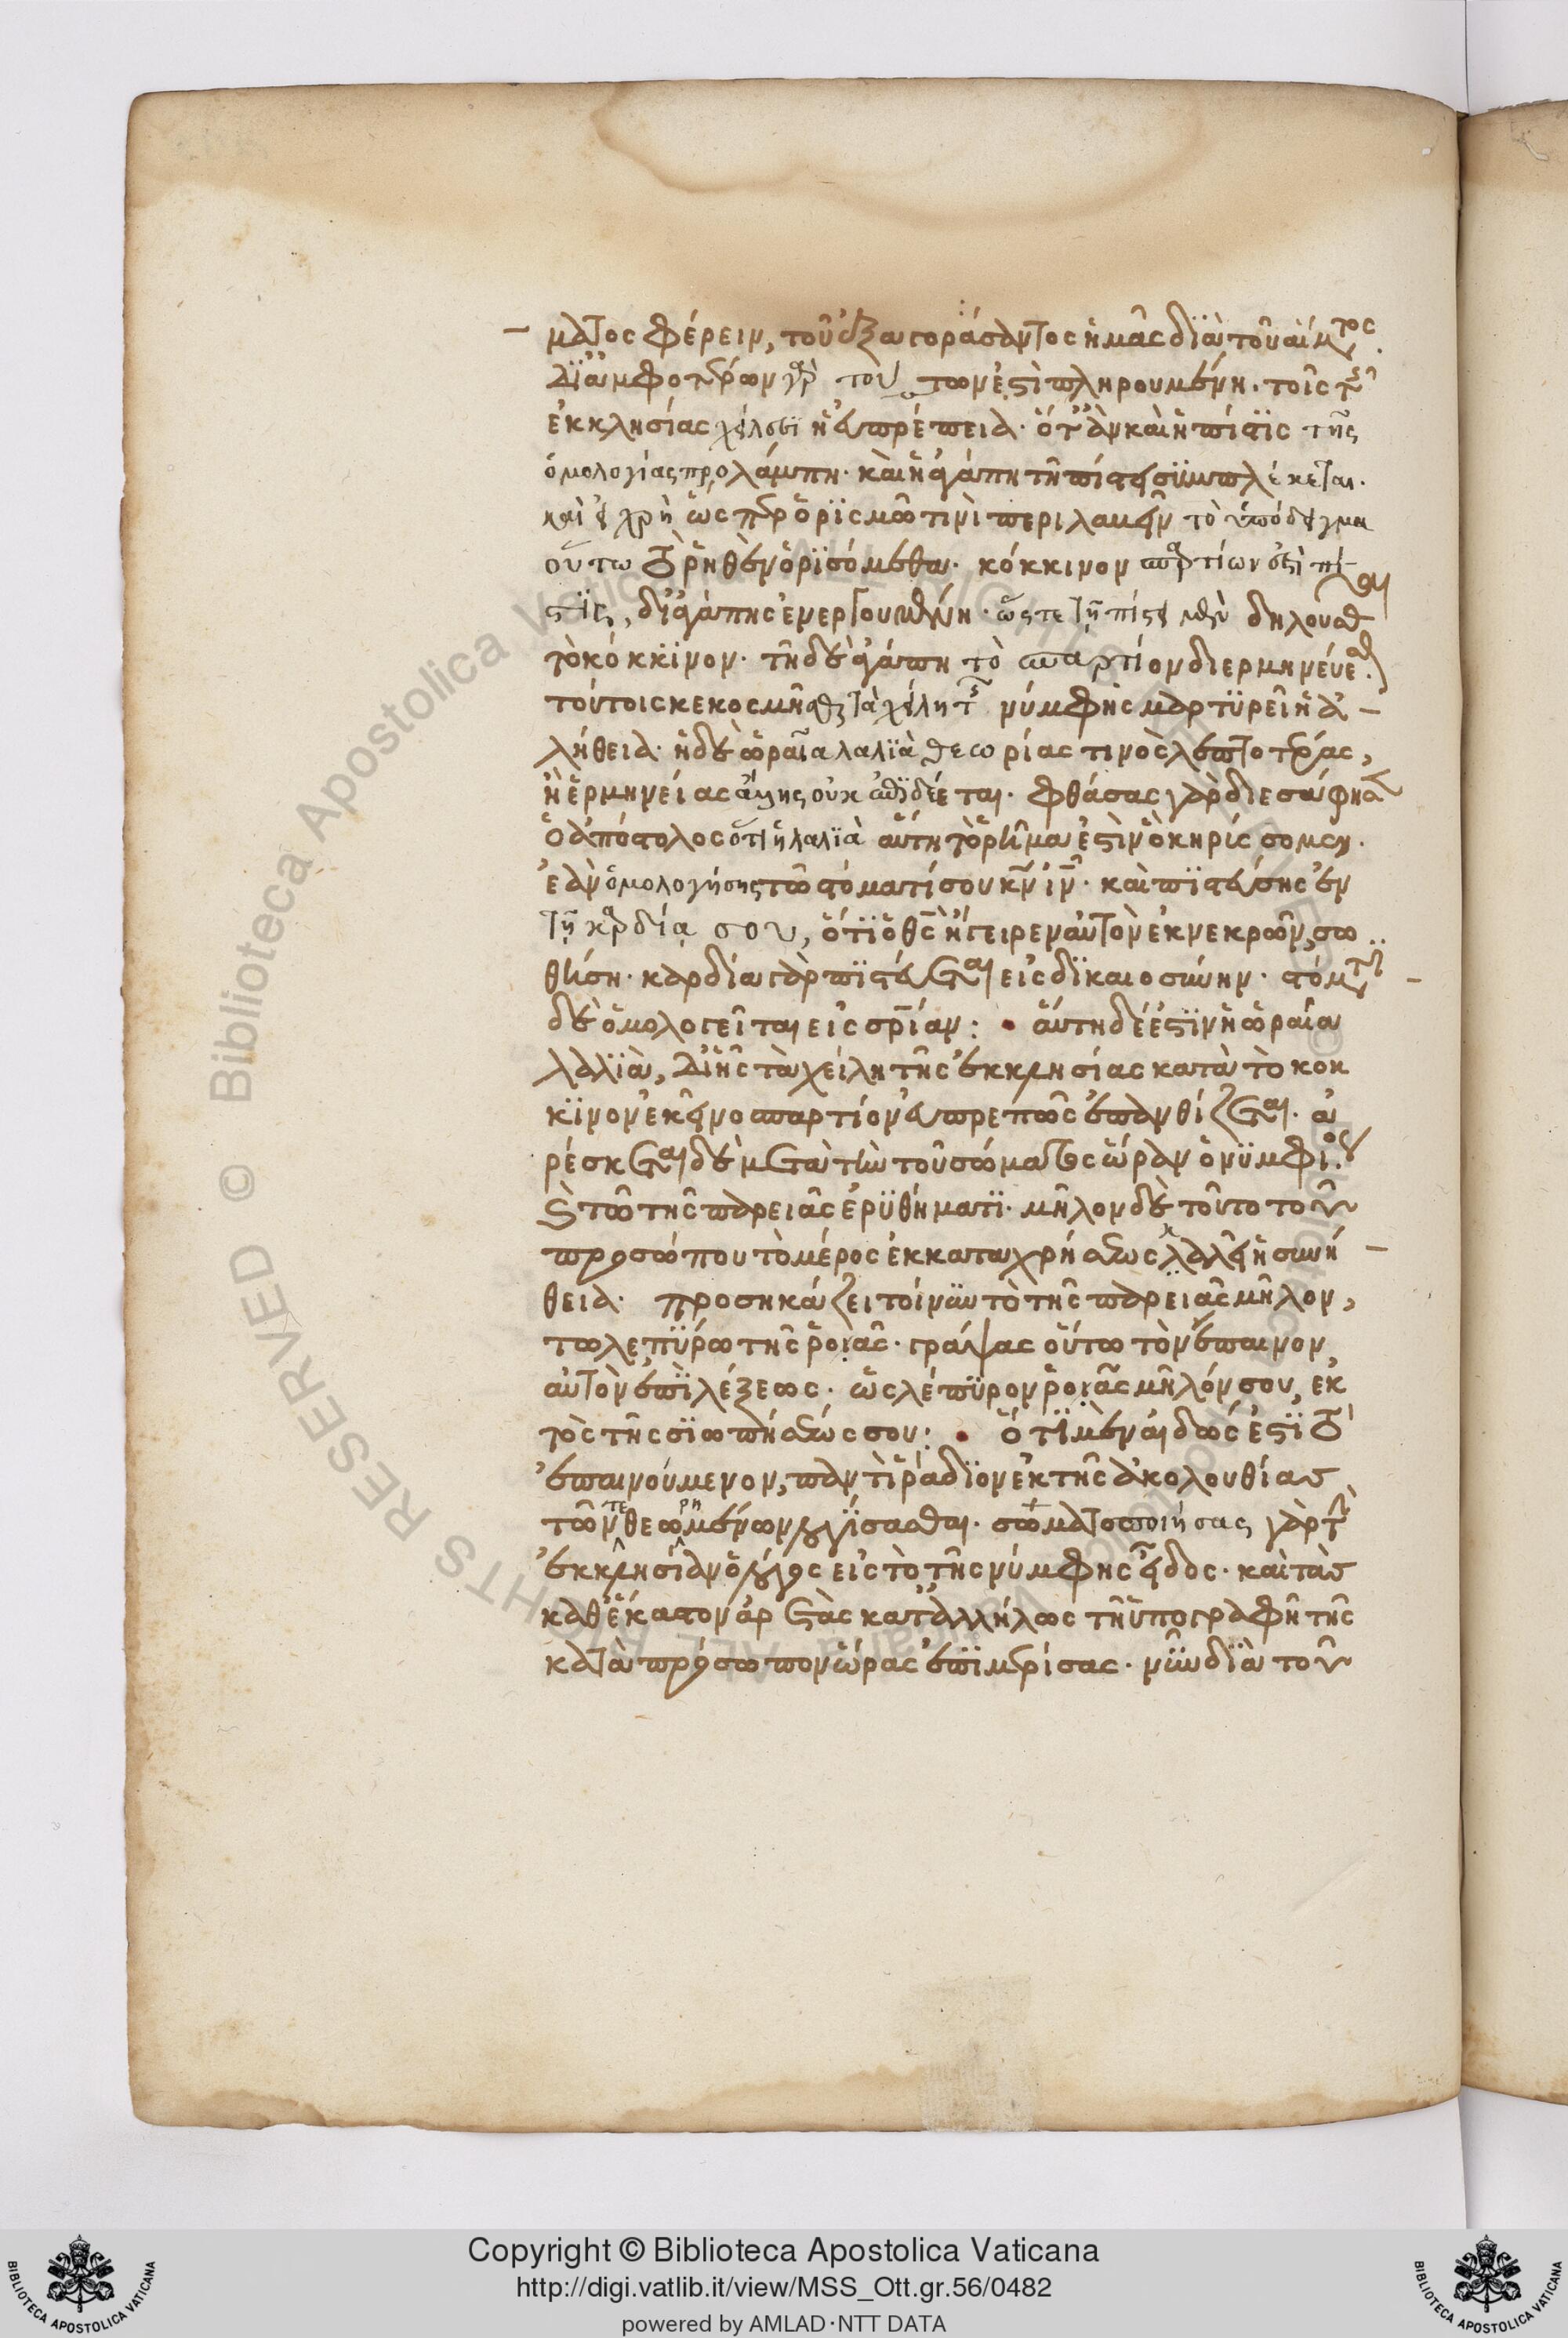 ματος φέρειν, τοῦ ἐξαγοράσαντος ἡμᾶς διὰ τοῦ αἵματος.
δι' ἀμφοτέρων γὰρ τούτων ἐστὶ πληρουμένη τοῖς τῆς
ἐκκλησίας χείλεσιν ἡ εὐπρέπεια· ὅταν καὶ ἡ πίστις τῆς
ὁμολογίας προλάμπῃ· καὶ ἡ ἀγάπη τῇ πίστει συμπλέκεται.
καὶ εἰ χρὴ ὥσπερ ὁρισμῷ τινὶ περιλαβεῖν τὸ ὑπόδειγμα
οὕτω τὸ ῥηθὲν ὁρισόμεθα· κόκκινον σπαρτίον ἐστὶ πί-
στις, δι' ἀγάπης ἐνεργουμένη· ὥστε τῇ πίστει μὲν δηλοῦσθαι
τὸ κόκκινον· τῇ δὲ ἀγάπῃ τὸ σπαρτίον διερμηνεύεσθαι.
τούτοις κεκοσμῆσθαι τὰ χείλη τῆς νύμφης μαρτυρεῖ ἡ ἀ-
λήθεια· ἡ δὲ ὡραία λαλιὰ θεωρίας τινὸς λεπτοτέρας,
ἢ ἑρμηνείας ἄλλης οὐκ ἐπιδέεται· φθάσας γὰρ διεσάφησεν
ὁ ἀπόστολος ὅτι ἡ λαλιὰ αὕτη τὸ ῥῆμα ἐστὶν ὃ κηρύσσομεν.
ἐὰν ὁμολογήσῃς τῷ στόματί σου κν ιν· καὶ πιστεύσῃς ἐν
τῇ καρδίᾳ σου, ὅτι ὁ θς ἤγειρεν αὐτὸν ἐκ νεκρῶν, σω
θήσῃ· καρδίᾳ γὰρ πιστεύεται εἰς δικαιοσύνην· στόματι
δὲ ὁμολογεῖται εἰς σρίαν: • αὕτη δέ ἐστιν ἡ ὡραία
λαλιὰ, δι' ἧς τὰ χείλη τῆς ἐκκλησίας κατὰ τὸ κοκ
κινον ἐκεῖνο σπαρτίον εὐπρεπῶς ἐπανθίζεται. ἀ
ρέσκεται δὲ μετὰ τὴν τοῦ στόματος ὥραν ὁ νυμφίος
καὶ τῷ τῆς παρειᾶς ἐρυθήματι· μῆλον δὲ τοῦτο τοῦ
προσώπου τὸ μέρος ἐκ καταχρήσεως καλεῖ ἡ συνή
θεια· προσεικάζει τοίνυν τὸ τῆς παρειᾶς μῆλον,
τῷ λεπύρῳ τῆς ῥοιᾶς· γράψας οὕτω τὸν ἔπαινον
αὐτὸν ἐπὶ λέξεως· ὡς λέπυρον ῥοιᾶς μῆλόν σου, ἐκ
τὸς τῆς σιωπήσεώς σου: • ὅτι μὲν αἰδώς ἐστι τὸ
ἐπαινούμενον, παντὶ ῥᾴδιον ἐκ τῆς ἀκολουθίας
τῶν τεθεωρημένων λογίσασθαι· σωματοποιήσας γὰρ τὴν
ἐκκλησίαν ὁ λόγος εἰς τὸ τῆς νύμφης εἶδος· καὶ τὰς
καθ' ἕκαστον ἀρετὰς καταλλήλως τῇ ὑπογραφῇ τῆς
κατὰ πρόσωπον ὥρας ἐπιμερίσας· νῦν διὰ τοῦ
Copyright © Biblioteca Apostolica Vaticana
http://digi.vatlib.it/view/MSS_Ott.gr.56/0482
powered by AMLAD·NTT DATA